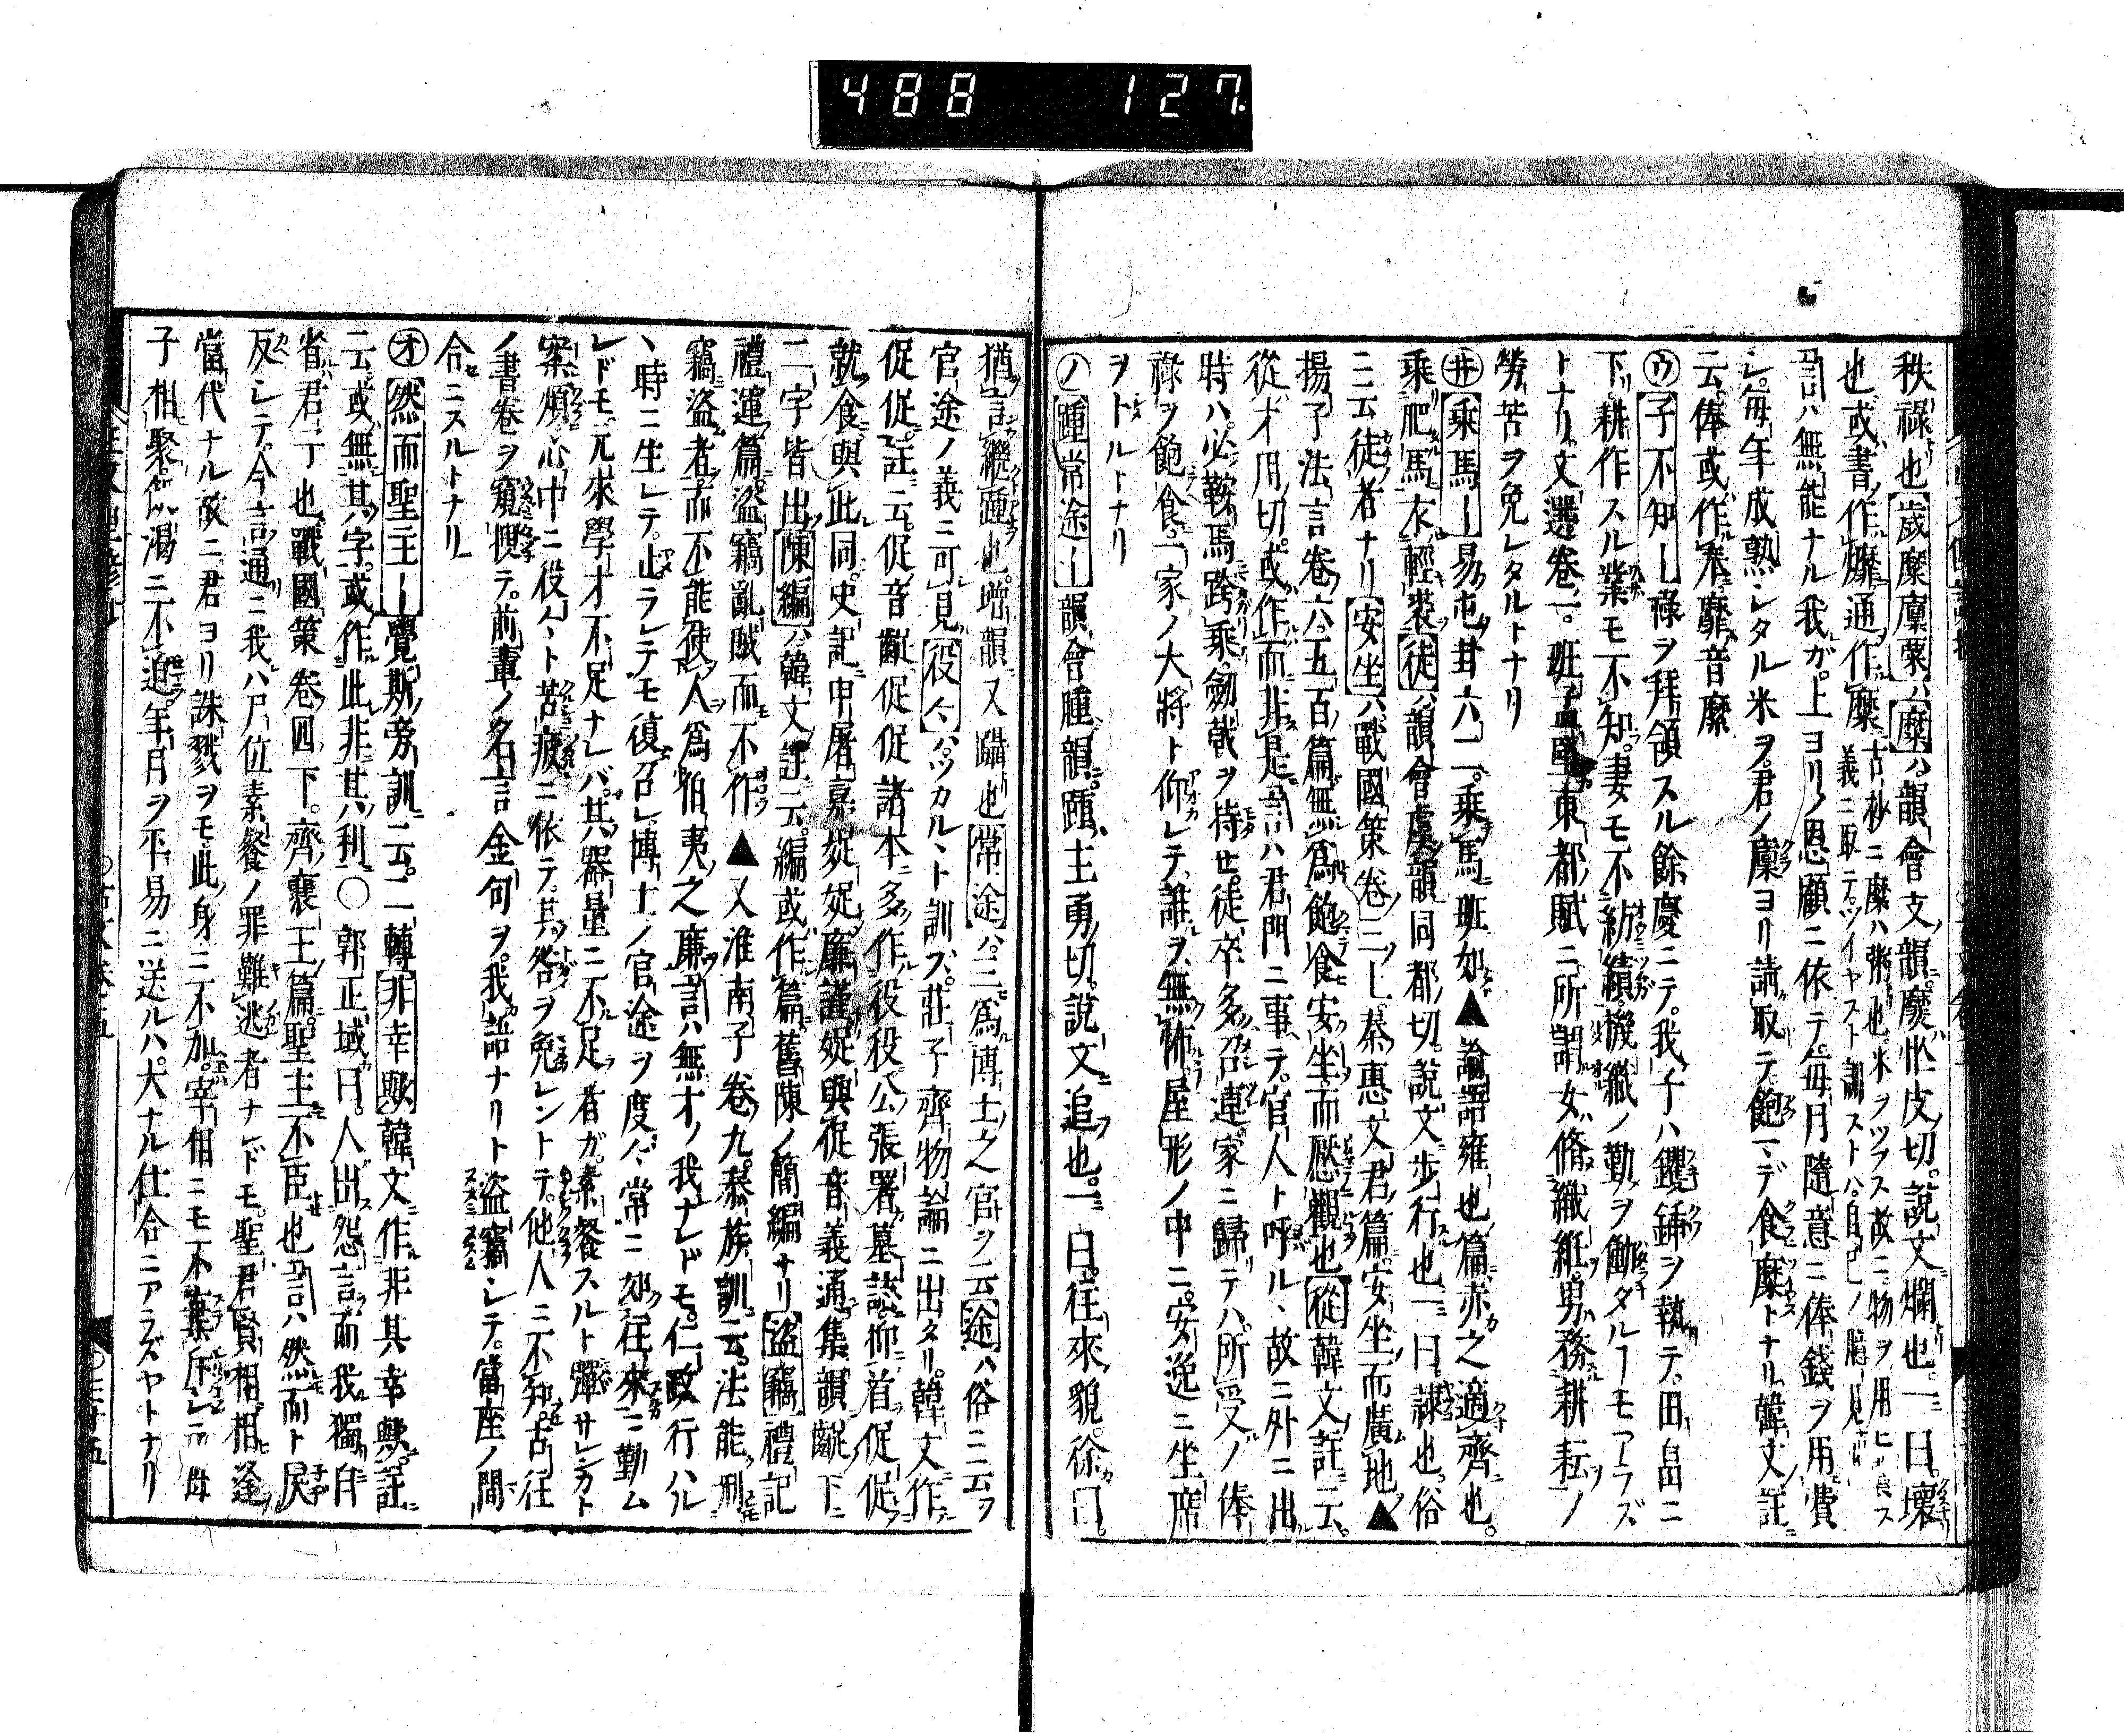 488 127
秩祿也歲糜廩粟ハ糜ハ韻會支韻糜忙皮切說文爛也一曰壞
也或書作𪎭通作糜古抄ニ糜ハ粥也米ヲツブス故ニ物ヲ用ヒ
義ニ取テツイヤスト訓ストハ自己ノ臆見
言ハ無能ナル我ガ上ヨリノ恩顧ニ依テ每月隨意ニ俸錢ヲ用費
シ每年成熟シタル米ヲ君ノ廩ヨリ請取テ飽マデ食糜トナリ韓文註ニ
云俸或作奉靡音縻
ウ子不知ー祿ヲ拜領スル餘慶ニテ我子ハ钁鍤ヲ執テ田畠ニ
下耕作スル業モ不知妻モ不紡績機織ノ勤ヲ働タルーモアラズ
トナリ文選卷一班孟堅東都賦ニ所謂女脩織紝男務耕耘ノ
勞苦ヲ免レタルトナリ
井乘馬ー易屯卦六二乘馬班如▲論語雍也篇赤之適齊也
乘肥馬衣輕裘徒ハ韻會虞韻同都切說文步行也一曰隷也俗
ニ云徒者ナリ安坐ハ戰國策卷三上秦惠文君篇安坐而廣地▲
揚子法言卷六五百篇無爲飽食安坐而厭觀也從韓文註云
從才用切或作而非是言ハ君門ニ事テ官人ト呼ル丶故ニ外ニ出
時ハ必鞍馬跨乘劒戟ヲ持セ徒卒多召連家ニ歸テハ所受ノ俸
祿ヲ飽食一家ノ大將ト仰レテ誰ヲ無怖屋形ノ中ニ安逸ニ坐席
ヲトルトナリ
ノ踵常途ー韻會腫韻踵主勇切說文追也一曰往來貌徐曰
猶言繼踵也增韻又躡也常途ハ三爲博士之官ヲ云途ハ俗ニ云ヲ
官途ノ義ニ可見役々ハツカル丶ト訓ス莊子齊物論ニ出タリ韓文作
促促註云促音齪促促諸本多作役役公張署墓誌抑首促促
就食與此同史記申屠嘉娖娖廉謹娖與促音義通集韻齪下ニ
二字皆出陳編ハ韓文註云編或作篇舊陳ノ簡編ナリ盜竊禮記
禮運篇盜竊亂賊而不作▲又淮南子卷九泰族訓云法能刑
竊盜者而不能使人爲伯夷之廉言ハ無才ノ我ナレドモ仁政行ハル
丶時ニ生レテ止ラレテモ復召レ博士ノ官途ヲ度々常ニ刻往來ニ勤ム
レドモ元來學才不足ナレバ其器量ニ不足者ガ素餐スルト彈サレンカト
案煩心中ニ役々ト苦疲ニ依テ其咎ヲ免レントテ他人ニ不知古往
ノ書卷ヲ窺模テ前輩ノ名言金句ヲ我語ナリト盜竊シテ當座ノ間
合ニスルトナリ
オ然而聖主ー覺斯旁訓云一轉非幸歟韓文作非其幸歟註
云或無其字或作此非其利〇郭正域曰人出怨言而我獨自
省君子也戰國策卷四下齊襄王篇聖主不臣也言ハ然而ト戾
反シテ今言通ニ我ハ尸位素餐ノ罪難逃者ナレドモ聖君賢相相逢
當代ナル故ニ君ヨリ誅戮ヲモ此身ニ不加宰相ニモ不棄斥シテ母
子相聚飢渴ニ不迫年月ヲ平易ニ送ルハ大ナル仕合ニアラズヤトナリ